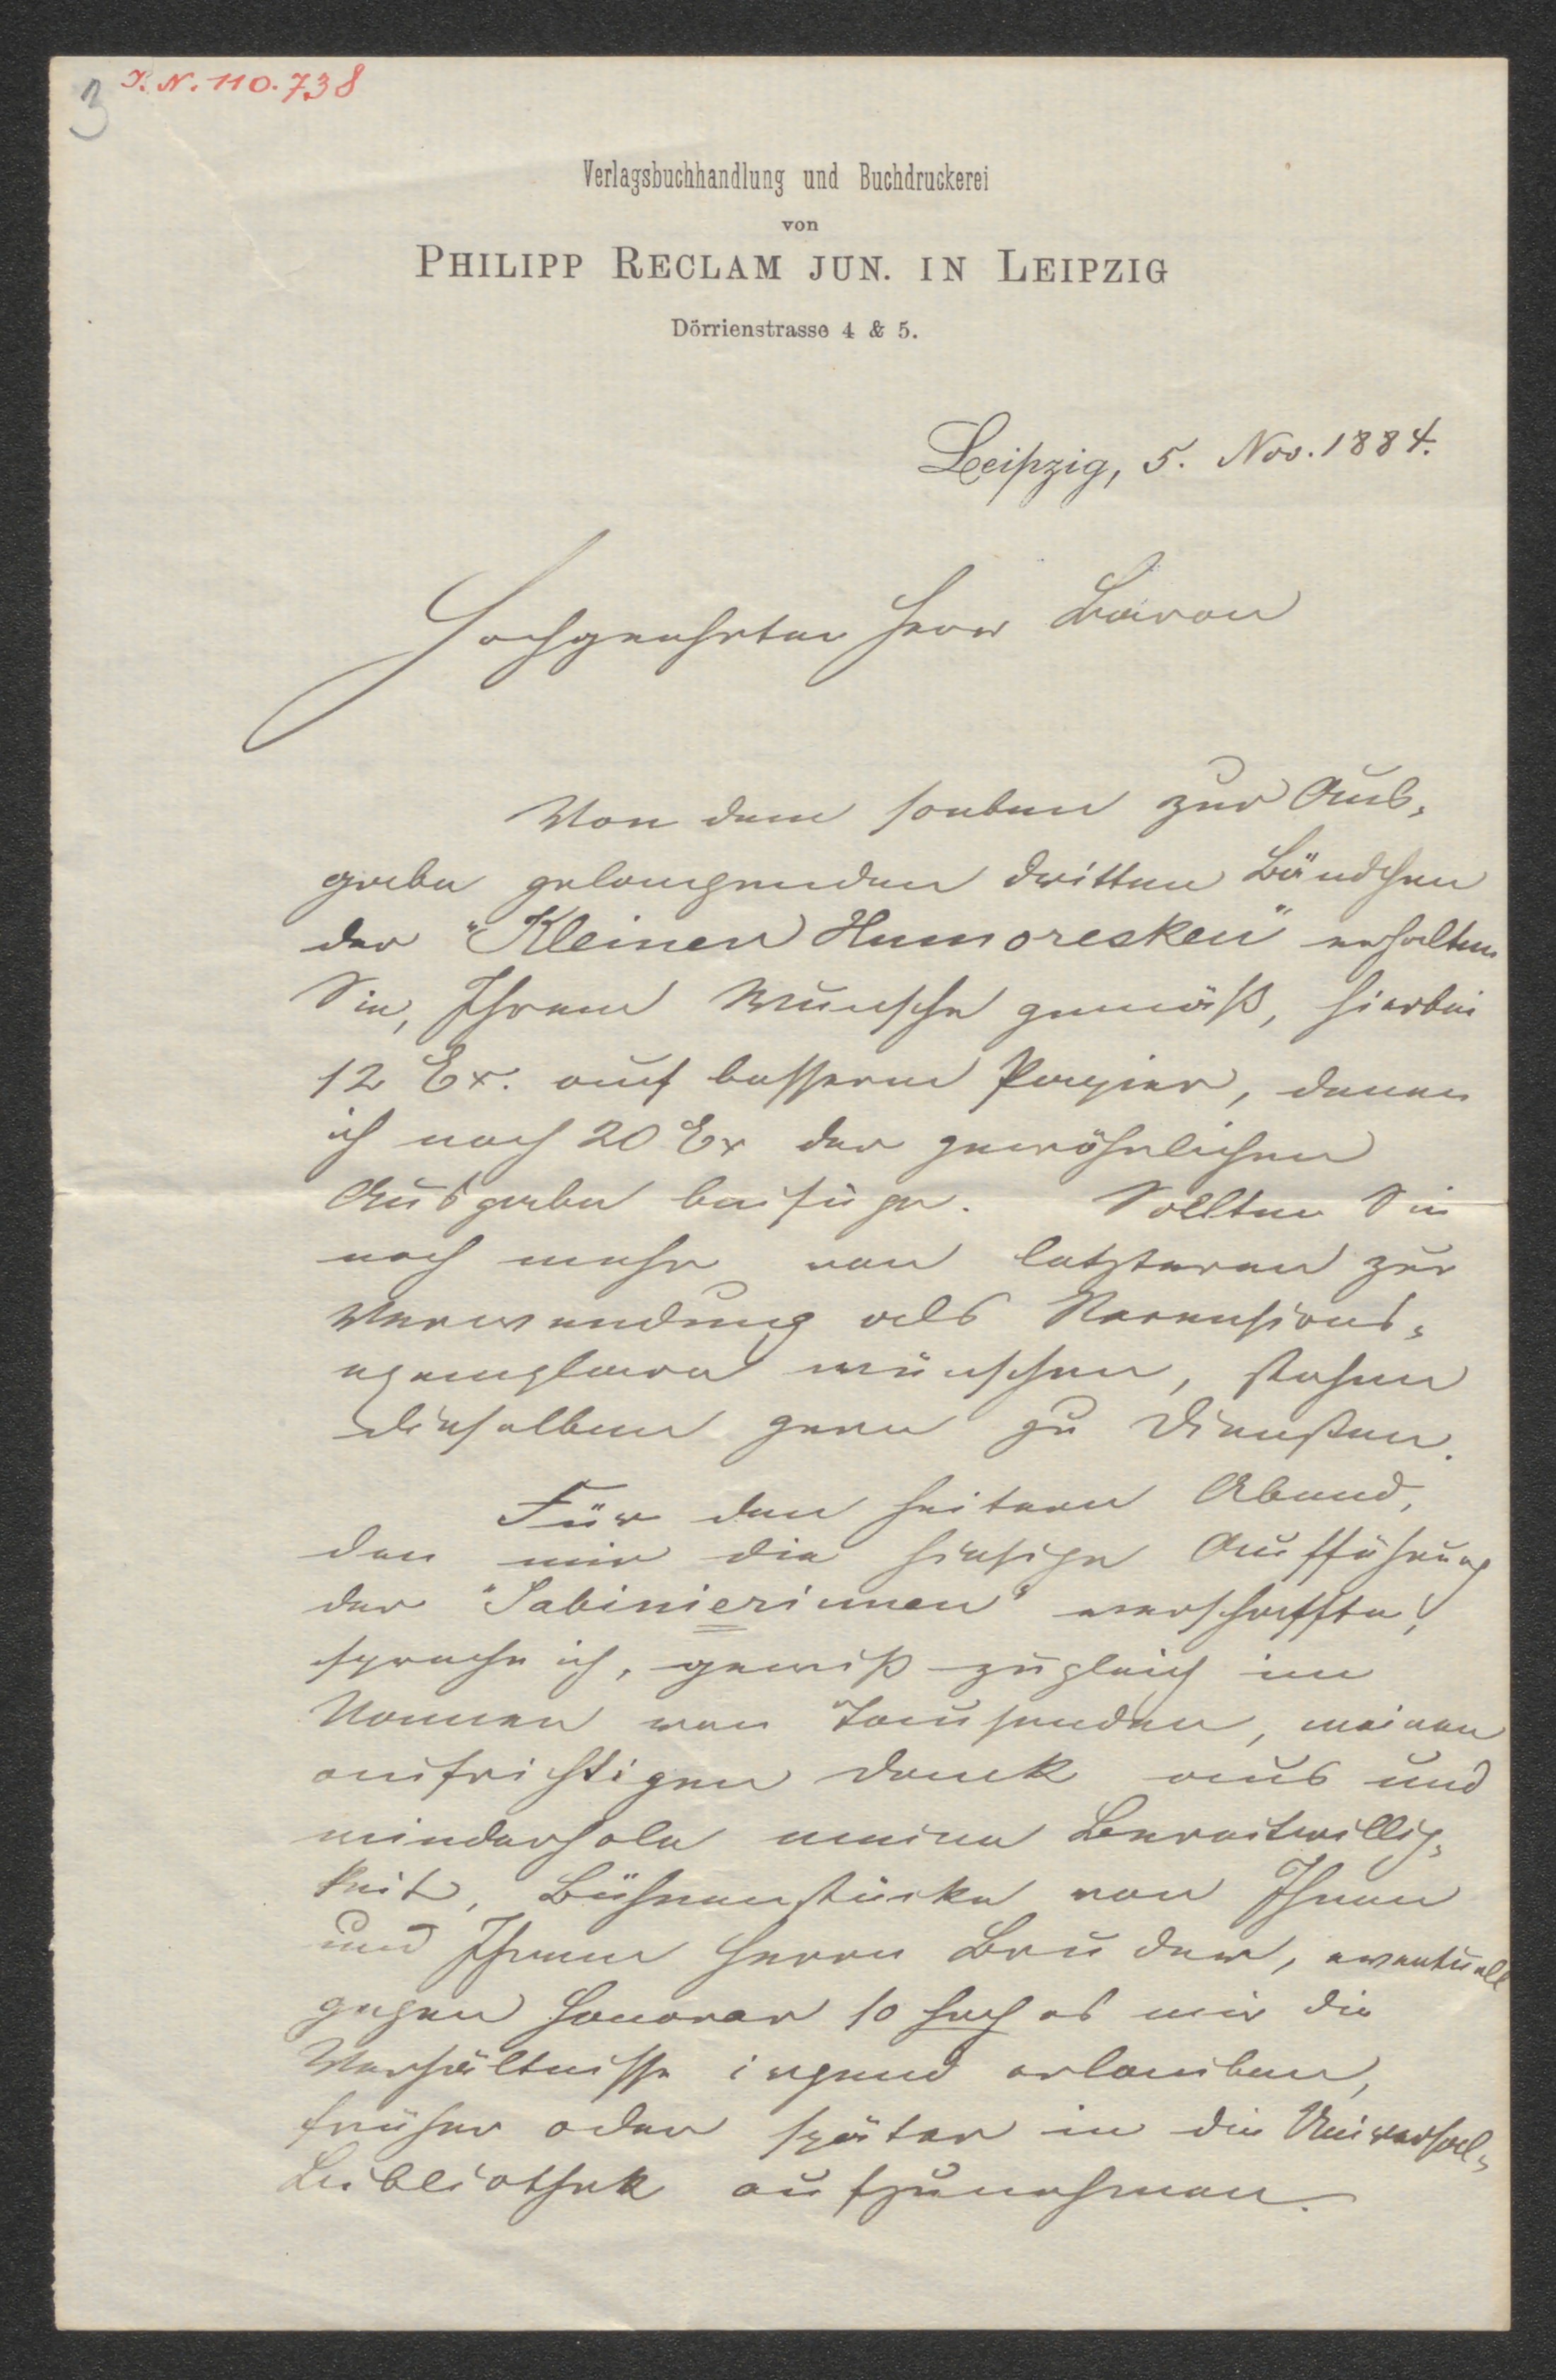 3 I. N. 110.738
Verlagsbuchhandlung und Buchdruckerei
von
PHILIPP RECLAM JUN. IN LEIPZIG
Dörrienstrasse 4 & 5.
Leipzig, 5. Nov. 1884.
Hochgeehrter Herr Baron
Von dem soeben zur Aus-
gabe gelangenden dritten Bändchen
der "Kleinen Humoresken" erhalten
Sie, Ihrem Wunsche gemäß, hierbei
12 Ex. auf besserem Papier, denen
ich noch 20 Ex der gewöhnlichen
Ausgabe beifüge. Sollten Sie
noch mehr von letzteren zur
Verwendung als Recensions-
exemplare wünschen, stehen
dieselben gern zu Diensten.
Für den heitern Abend,
den mir die hiesige Aufführung
der "Sabinierinnen" verschaffte,
spreche ich, gewiß zugleich im
Namen von Tausenden, meinen
aufrichtigen Dank aus und
wiederhole meine Bereitwillig-
keit, Bühnenstücke von Ihnen
und Ihrem Herrn Bruder, eventuell
gegen Honorar so hoch es mir die
Verhältnisse irgend erlauben,
früher oder später in die Universal-
Bibliothek aufzunehmen.